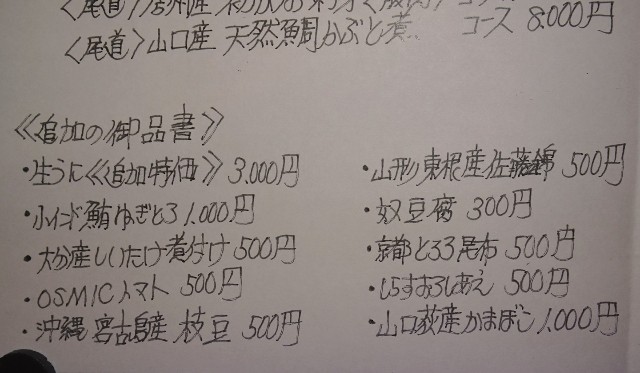 〈尾道〉山口産 天然鯛かぶと煮 コース 8,000円
《追加の御品書》
・生うに《追加特価》 3,000円
・小インド鮪ねぎとろ 1,000円
・大分産しいたけ煮付け 500円
・OSMICトマト 500円
・沖縄 宮古島産 枝豆 500円
・山形 東根産佐藤錦 500円
・奴豆腐 300円
・京都とろろ昆布 500円
・しらすおろしあえ 500円
・山口萩産かまぼこ 1,000円